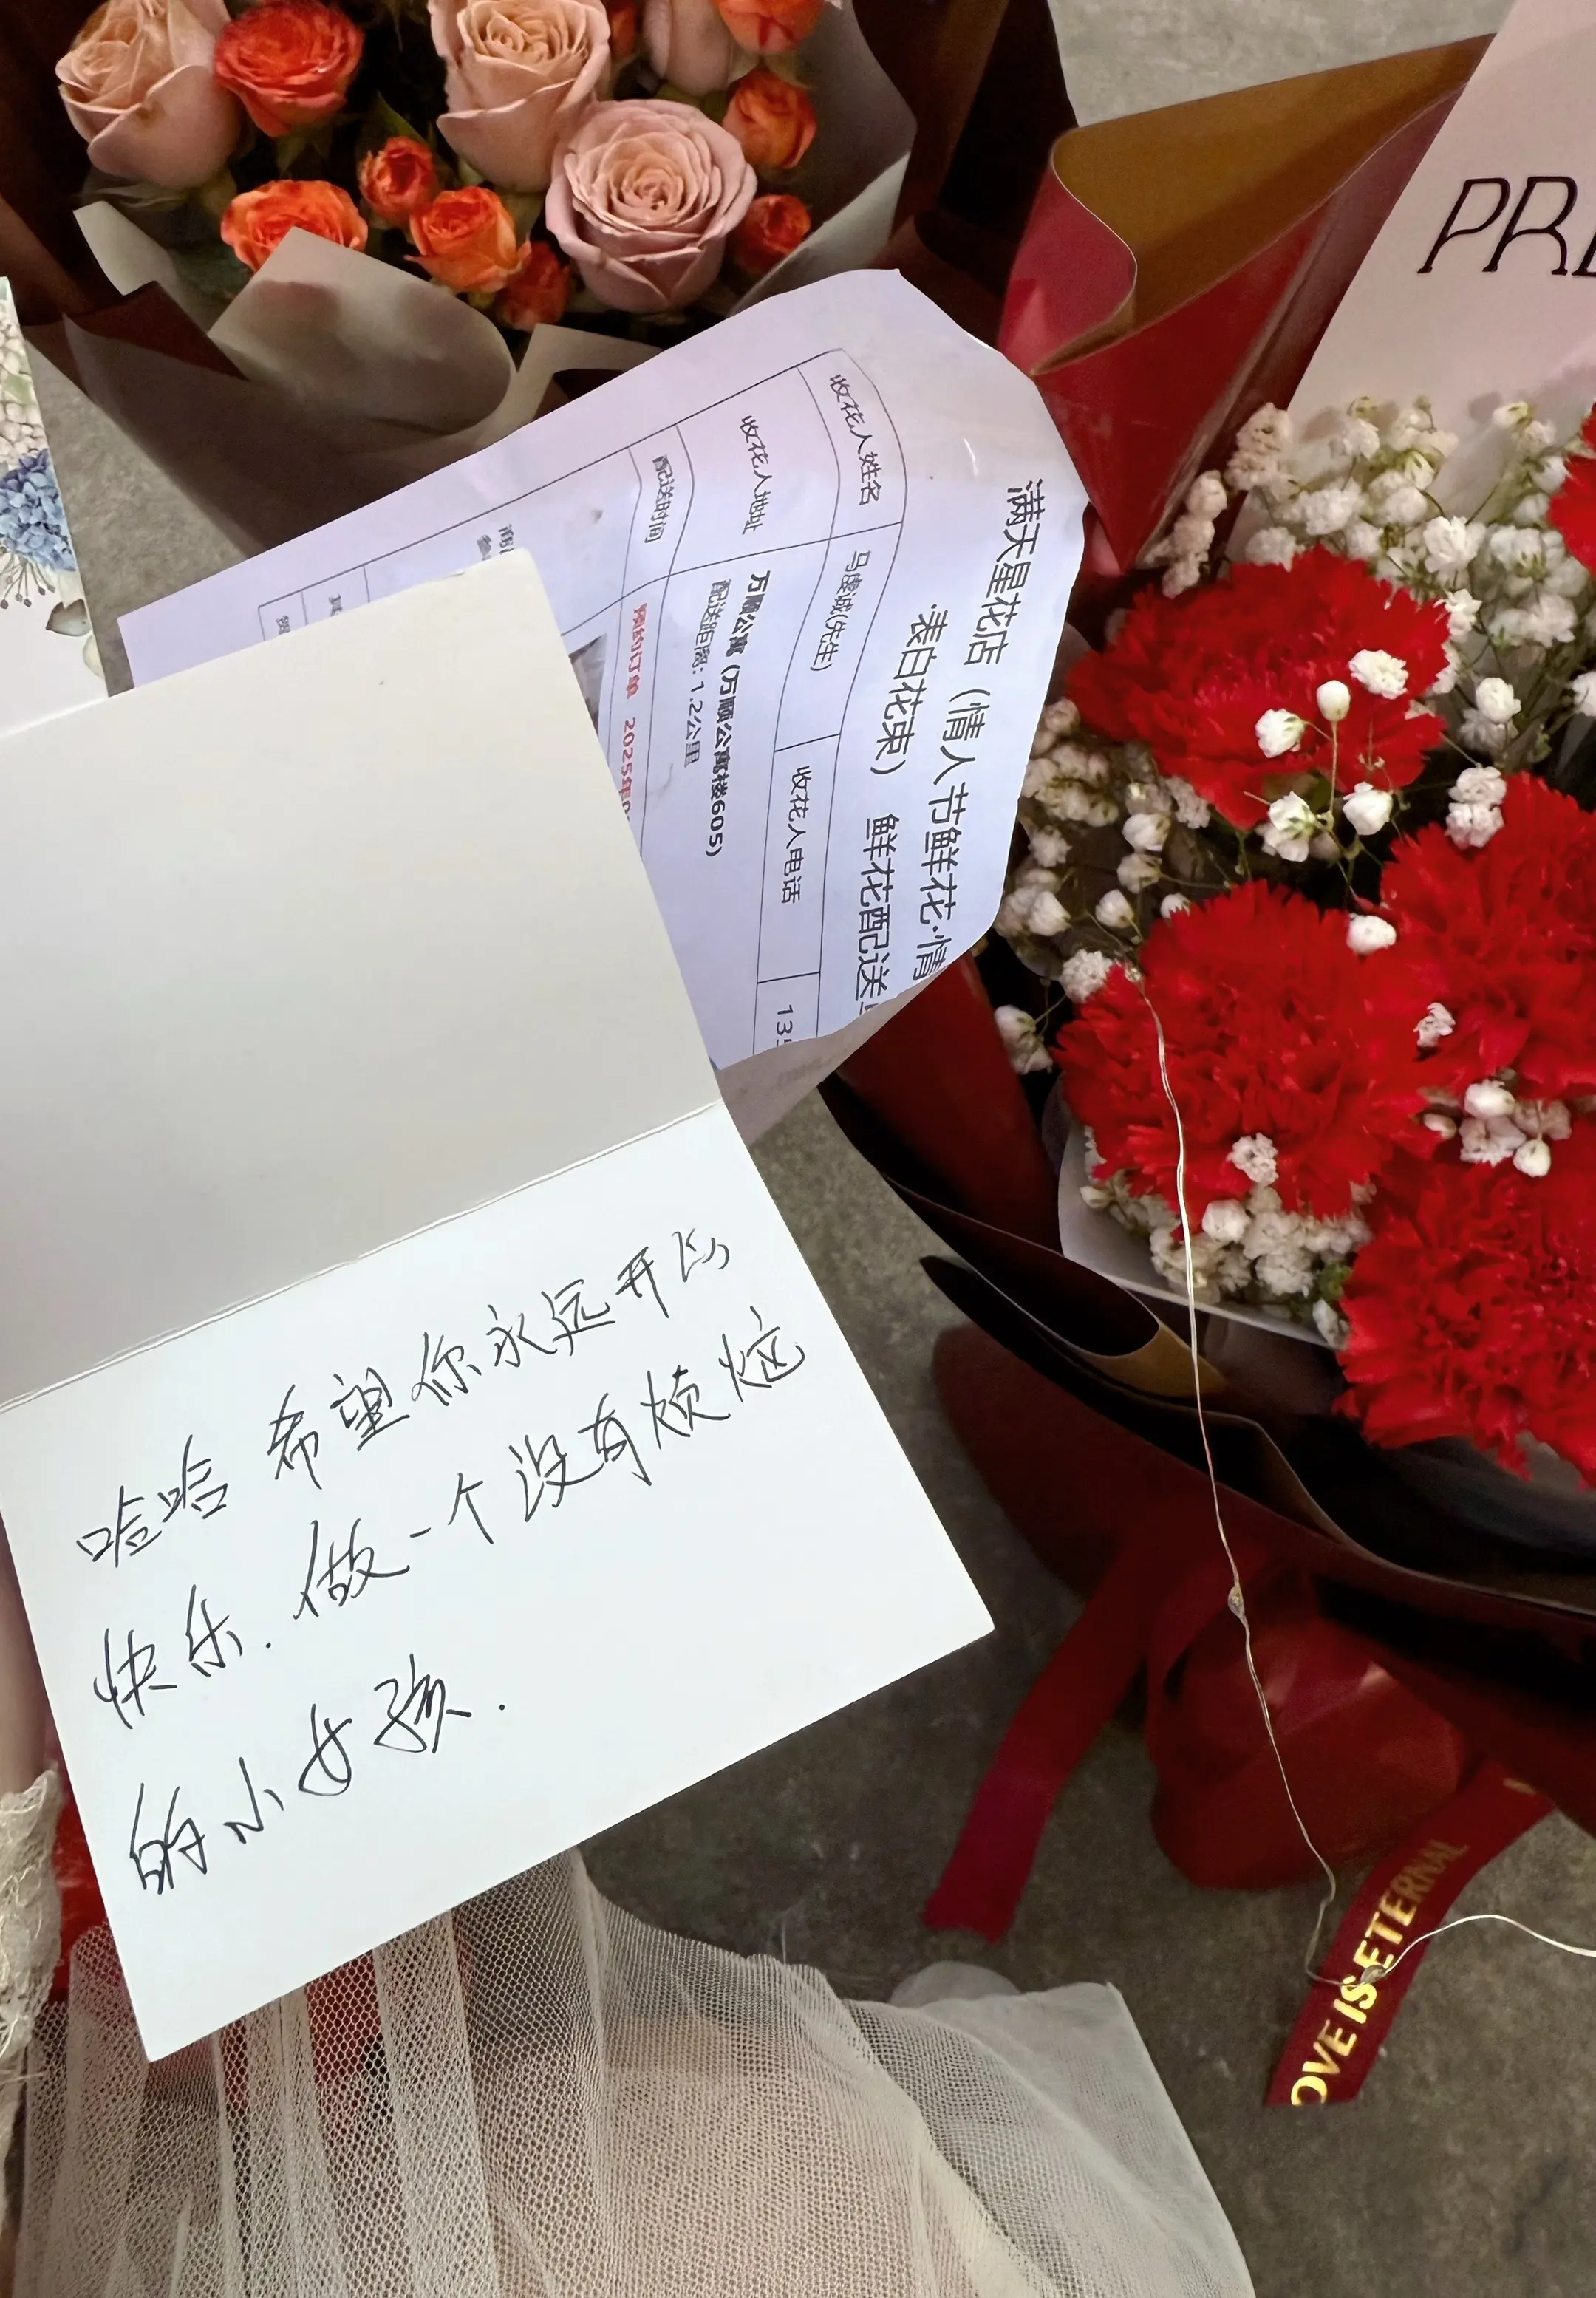 PR
满天星花店（情人节鲜花·情
·表白花束） 鲜花配送
收花人姓名 马虔诚(先生) 收花人电话 135
收花人地址 万顺公寓（万顺公寓楼605）
配送距离：1.2公里
配送时间 预约订单 2025年
哈哈 希望你永远开心
快乐.做一个没有烦恼
的小女孩.
OVE IS ETERNAL